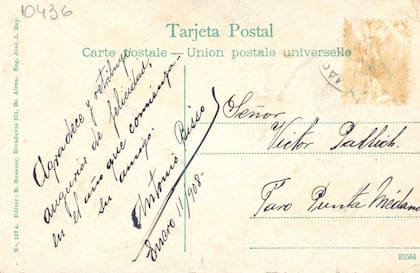 10436
Tarjeta Postal
Carte postale — Union postale universelle
Agradece y retribuye
augurios de felicidad,
en el año que comienza.
su amigo.
Antonio Risso
Enero 11/908-
Señor
Victor
Faro Punta Médano
No. 127 A. Editor: R. Rosauer, Rivadavia 571, Bs. Aires. Neg. José A. Rey.
93594